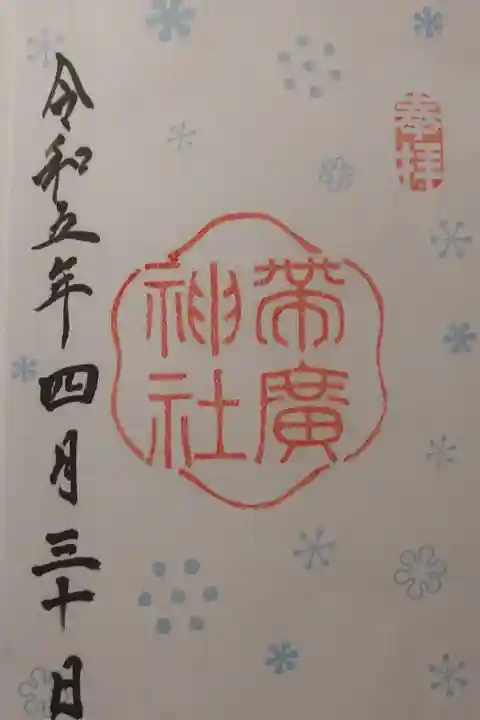 奉拝
帯廣
神社
令和五年四月三十日